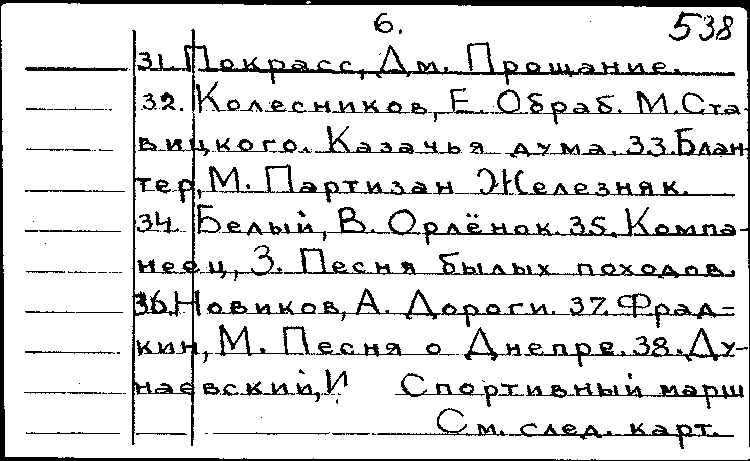 6. 538
31. Покрасс, Дм. Прощание.
32. Колесников, Е. Обраб. М. Ста-
вицкого. Казачья дума. 33. Блан-
тер, М. Партизан Железняк.
34. Белый, В. Орлёнок. 35. Компа-
неец, З. Песня былых походов.
36. Новиков, А. Дороги. 37. Фрад=
кин, М. Песня о Днепре. 38. Ду-
наевский, И. Спортивный марш
См. след. карт.